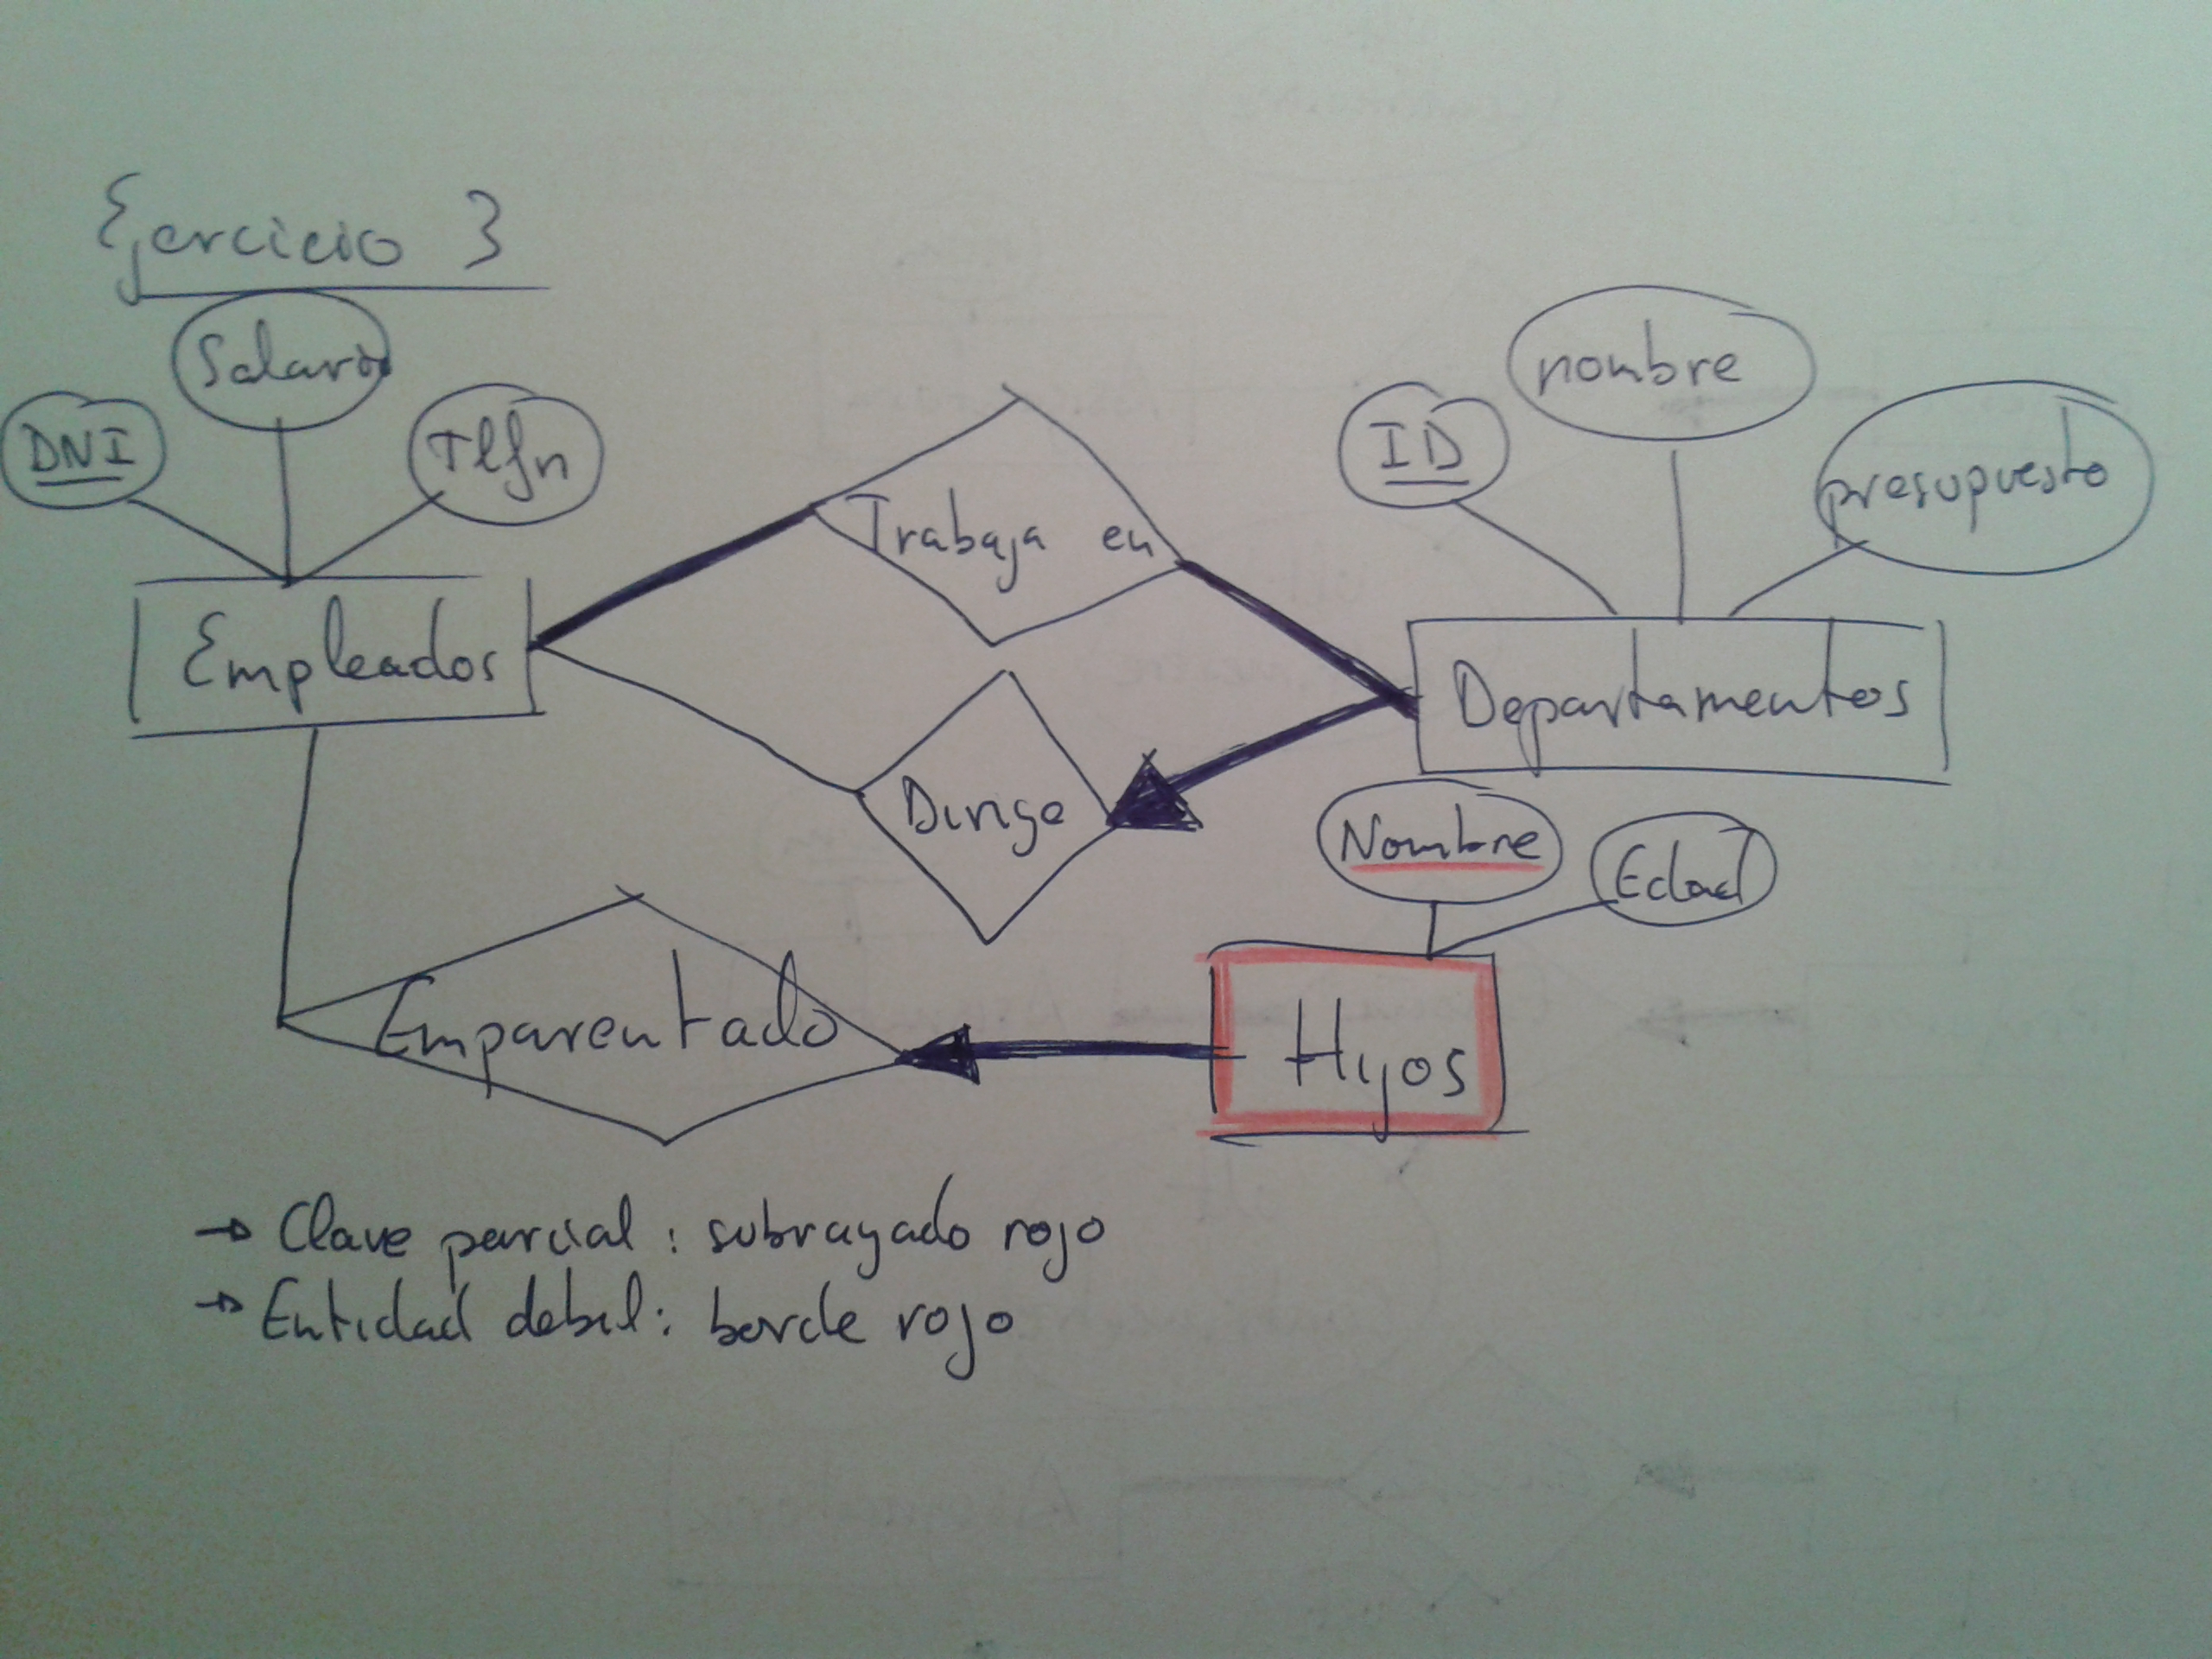 Ejercicio 3
Salario
DNI
Tlfn
nombre
ID
presupuesto
Trabaja en
Empleados
Departamentos
Dirige
Nombre
Edad
Emparentado
Hijos
→ Clave parcial: subrayado rojo
→ Entidad debil: borde rojo